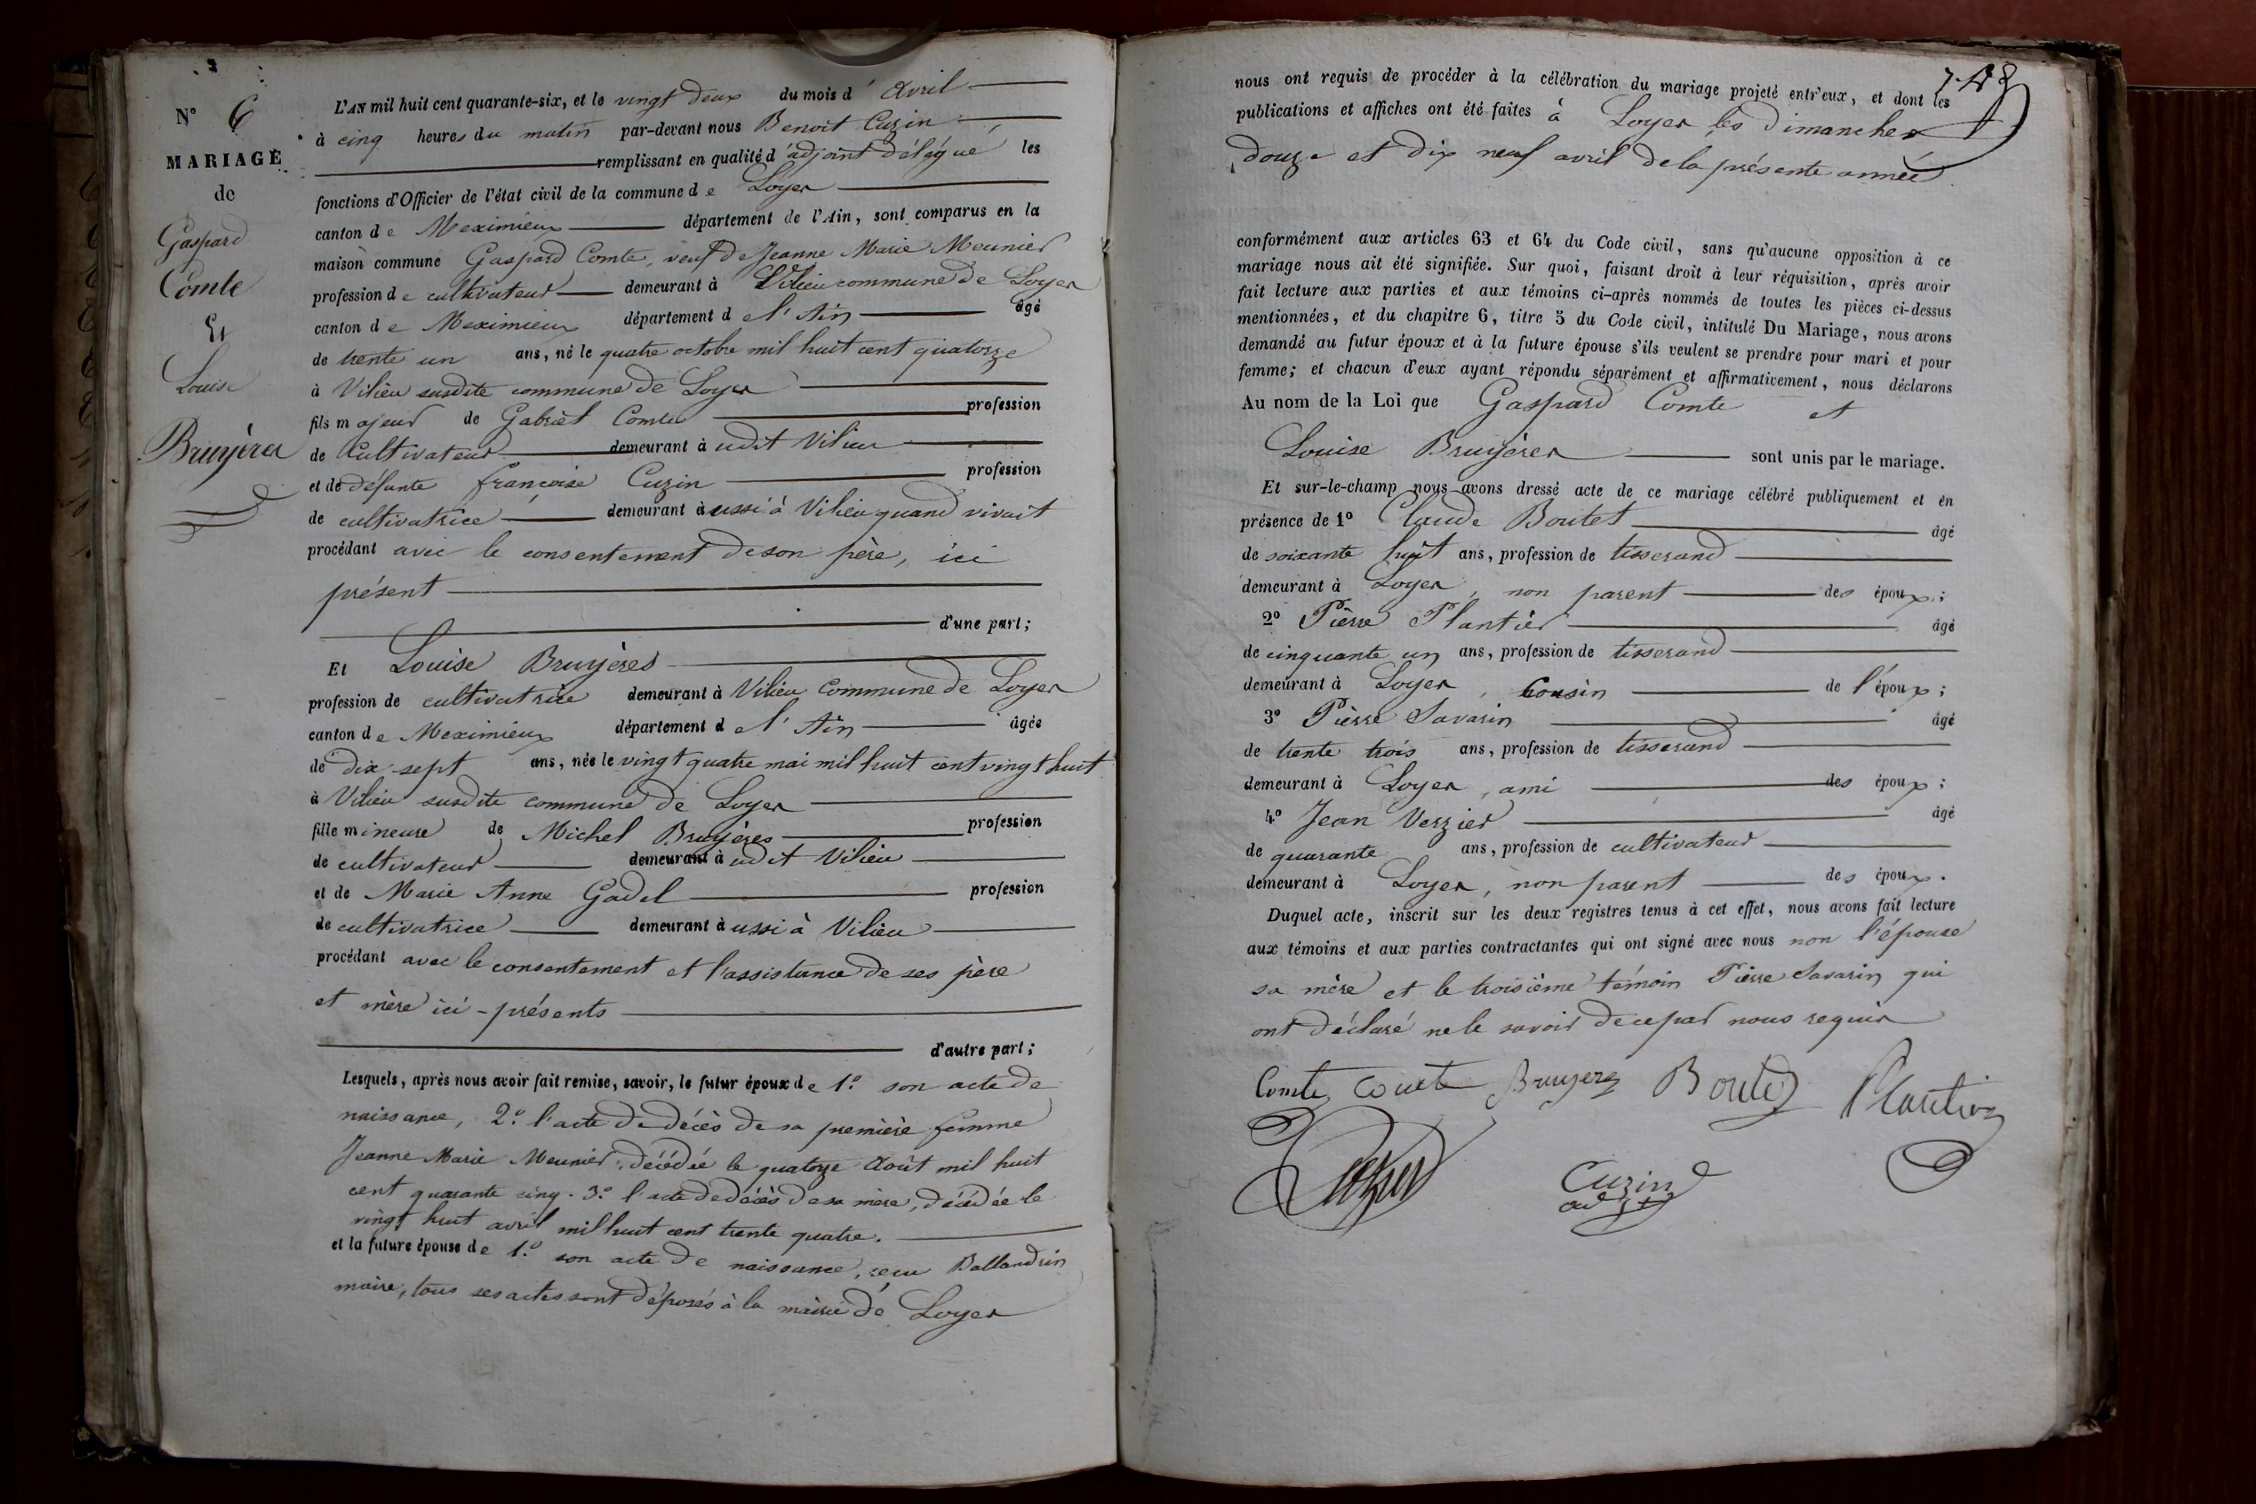 N° 6
MARIAGE
de
Gaspard
Comte
Et
Louise
Bruyères
L'AN mil huit cent quarante-six, et le vingt deux du mois d'avril
à cinq heures du matin par-devant nous Benoit Cuzin
remplissant en qualité d'adjoint délégué les
fonctions d'Officier de l'état civil de la commune de Loyes
canton de Meximieux département de l'Ain, sont comparus en la
maison commune Gaspard Comte, veuf de Jeanne Marie Meunier
profession de cultivateur demeurant à Vilieu commune de Loyes
canton de Meximieux département de l'Ain âgé
de trente un ans, né le quatre octobre mil huit cent quatorze
à Vilieu susdite commune de Loyes
fils majeur de Gabriel Comte profession
de Cultivateur demeurant à udit Vilieu
et de défunte françoise Cuzin profession
de cultivatrice demeurant aussi à Vilieu quand vivait
procédant avec le consentement de son père, ici
présent
d'une part;
Et Louise Bruyères
profession de cultivatrice demeurant à Vilieu Commune de Loyes
canton de Meximieux département de l'Ain âgée
de dix-sept ans, née le vingt quatre mai mil huit cent vingt huit
à Vilieu susdite commune de Loyes
fille mineure de Michel Bruyères profession
de cultivateur demeurant à udit Vilieu
et de Marie Anne Gadel profession
de cultivatrice demeurant aussi à Vilieu
procédant avec le consentement et l'assistance de ses père
et mère ici-présents
d'autre part;
Lesquels, après nous avoir fait remise, savoir, le futur époux de 1.° son acte de
naissance, 2.° l'acte de décès de sa première femme
Jeanne Marie Meunier, décédée le quatorze Août mil huit
cent quarante cinq. 3.° l'acte de décès de sa mère, décédée le
vingt huit avril mil huit cent trente quatre.
et la future épouse de 1.° son acte de naissance, reçu Ballandrin
maire, tous ses actes sont déposés à la mairie de Loyes
nous ont requis de procéder à la célébration du mariage projeté entr'eux, et dont les
publications et affiches ont été faites à Loyes les Dimanches
douze et dix neuf avril de la présente année
conformément aux articles 63 et 64 du Code civil, sans qu'aucune opposition à ce
mariage nous ait été signifiée. Sur quoi, faisant droit à leur réquisition, après avoir
fait lecture aux parties et aux témoins ci-après nommés de toutes les pièces ci-dessus
mentionnées, et du chapitre 6, titre 5 du Code civil, intitulé Du Mariage, nous avons
demandé au futur époux et à la future épouse s'ils veulent se prendre pour mari et pour
femme; et chacun d'eux ayant répondu séparément et affirmativement, nous déclarons
Au nom de la Loi que Gaspard Comte et
Louise Bruyères sont unis par le mariage.
Et sur-le-champ nous avons dressé acte de ce mariage célébré publiquement et en
présence de 1° Claude Boutet âgé
de soixante huit ans, profession de tisserand
demeurant à Loyes, non parent des époux;
2° Pierre Plantier âgé
de cinquante un ans, profession de tisserand
demeurant à Loyes, Cousin de l'époux;
3° Pierre Savarin âgé
de trente trois ans, profession de tisserand
demeurant à Loyes, ami des époux;
4° Jean Verzier âgé
de quarante ans, profession de cultivateur
demeurant à Loyes, non parent des époux.
Duquel acte, inscrit sur les deux registres tenus à cet effet, nous avons fait lecture
aux témoins et aux parties contractantes qui ont signé avec nous non l'épouse
sa mère et le troisième témoin Pierre Savarin qui
ont déclaré ne le savoir de ce par nous requis
Comte Comte Bruyere Boutet Plantier
Cuzin
adjt